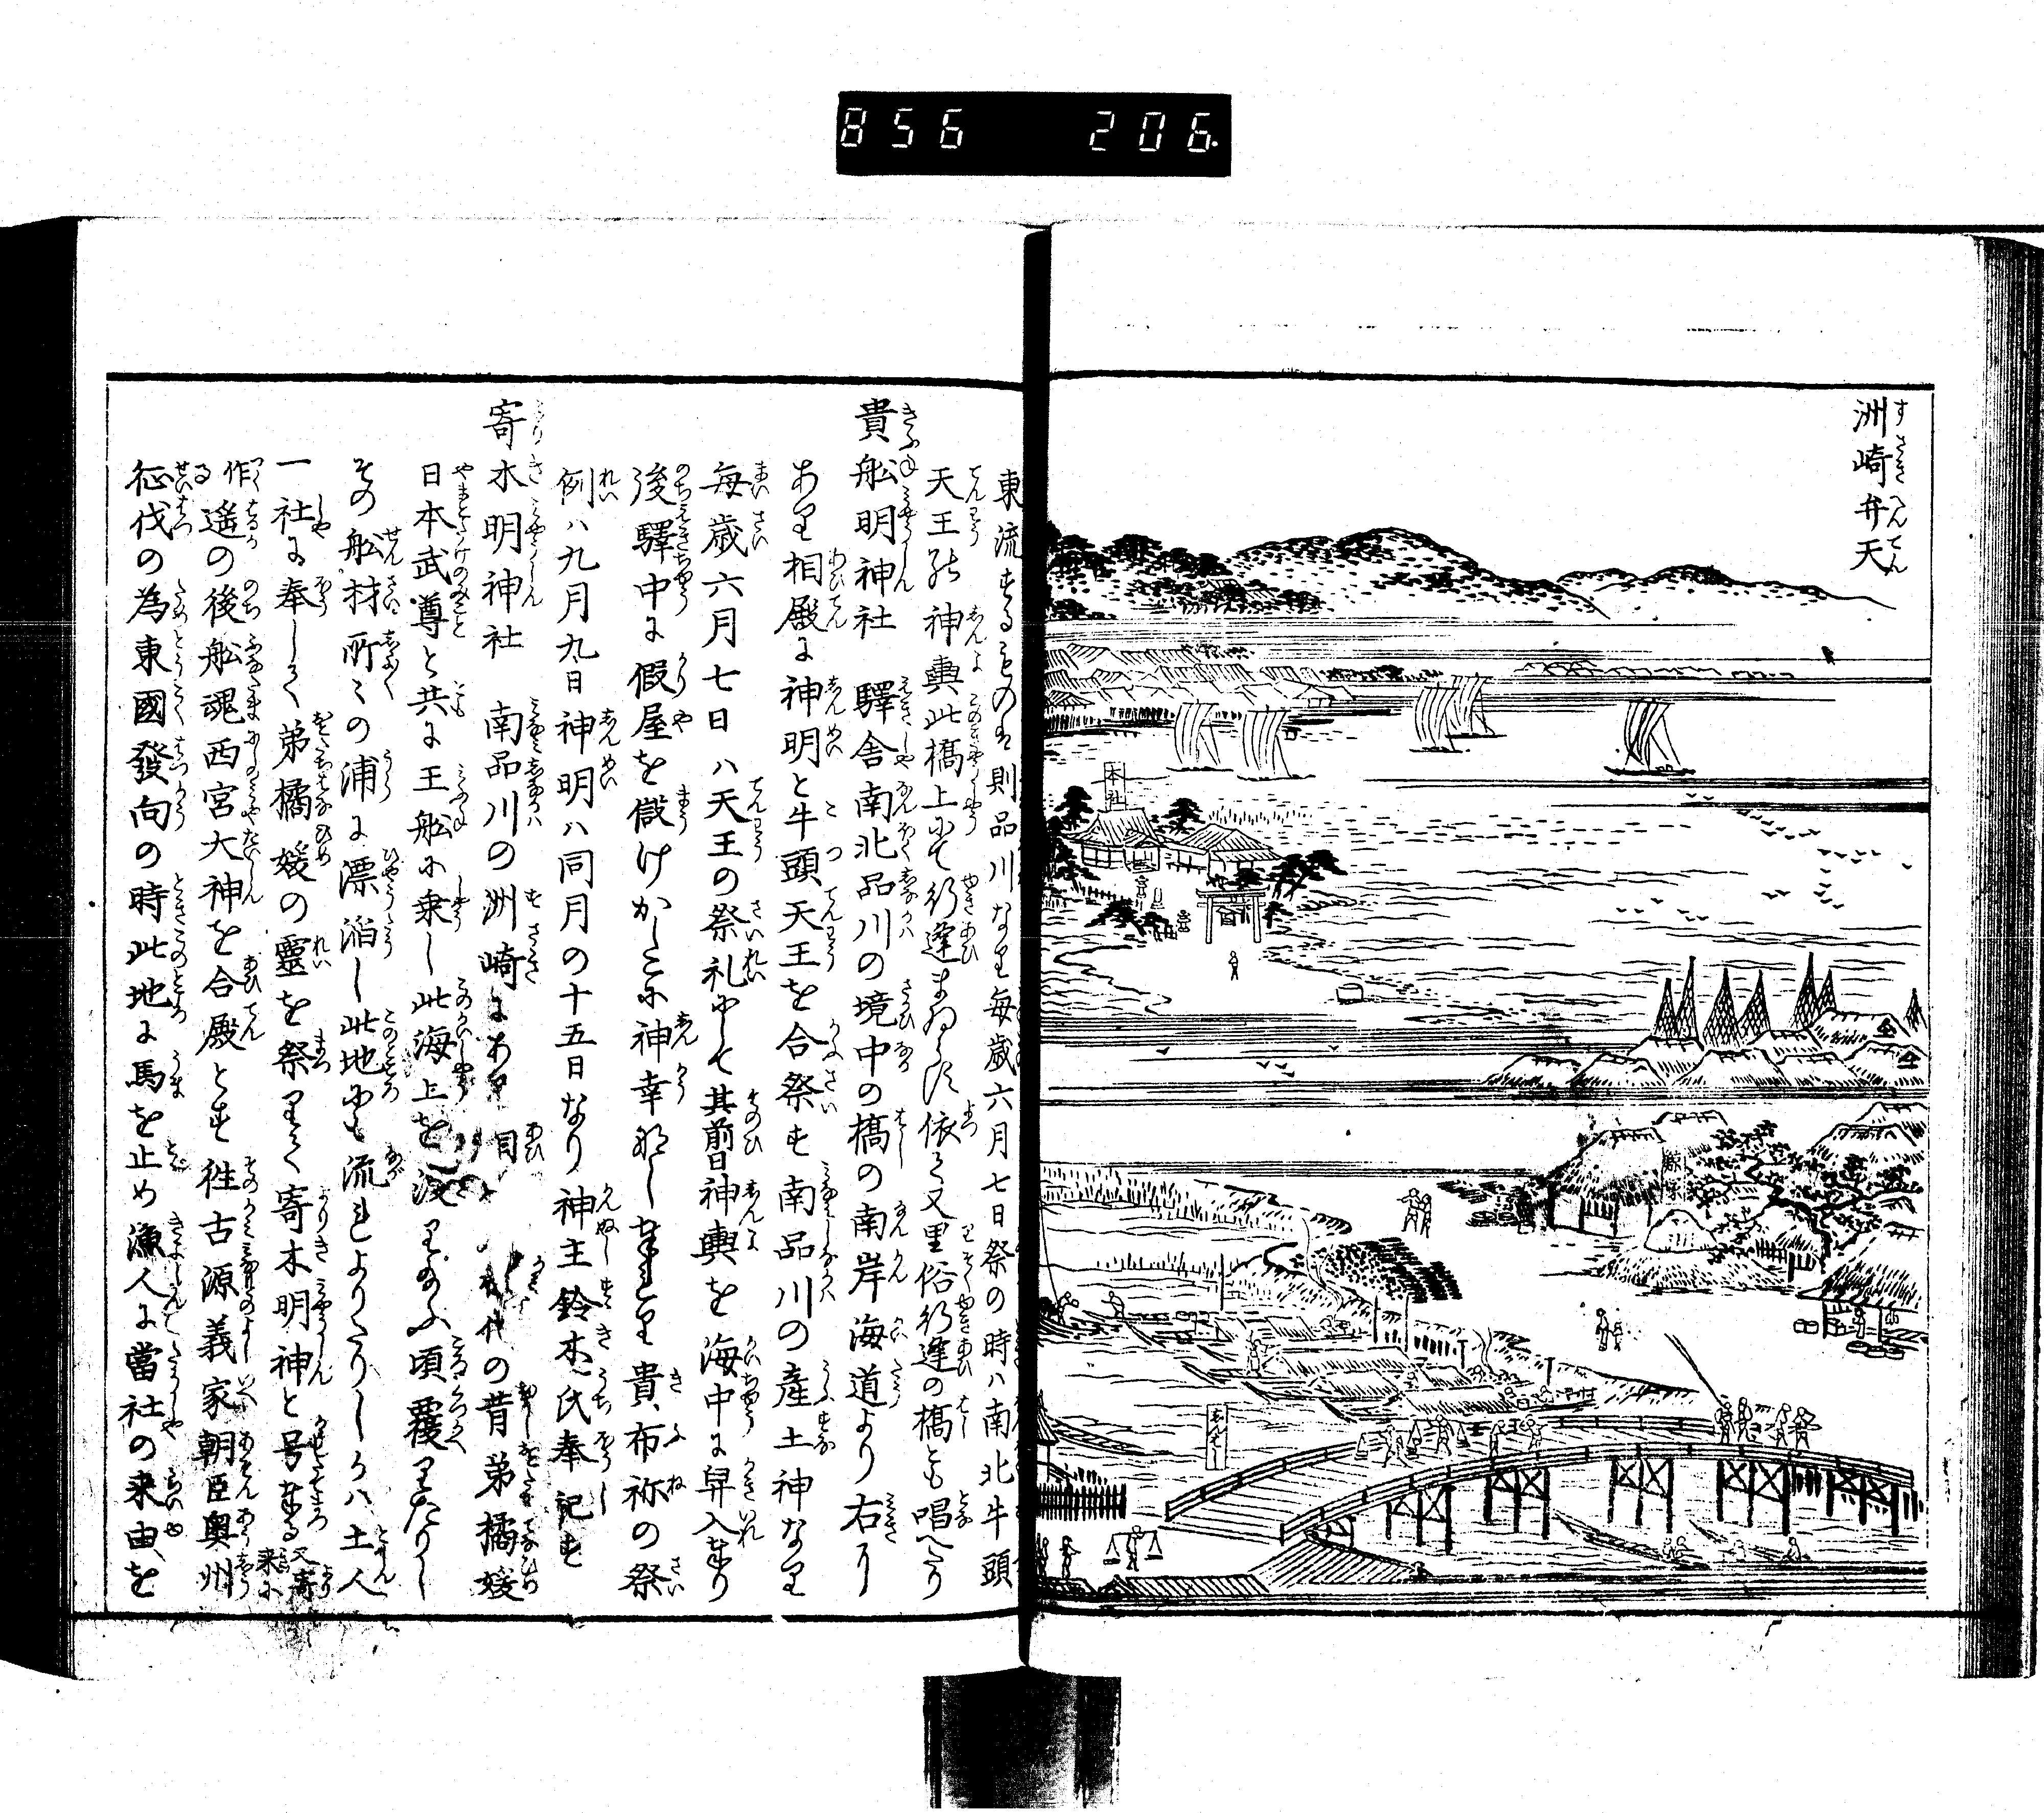 856 206
洲崎弁天
本社
鯨塚
東流するものは則品川なり毎歳六月七日祭の時ハ南北牛頭
天王の神輿此橋上にて行逢まゐらす依て又里俗行逢の橋とも唱へたり
貴舩明神社 驛舎南北品川の境中の橋の南岸海道より右に
あり相殿に神明と牛頭天王を合祭す南品川の産土神なり
毎歳六月七日ハ天王の祭礼にして其前日神輿を海中に舁入奉り
後驛中に假屋を儲けかしこに神幸なし奉れり貴布祢の祭
例ハ九月九日神明ハ同月の十五日なり神主鈴木氏奉祀す
寄木明神社 南品川の洲崎にあり 代の昔弟橘媛
日本武尊と共に王舩に乗し此海上を渡り給ふ頃覆りたりし
その舩材所々の浦に漂滔し此地にも流れよりたりしかハ土人
一社に奉して弟橘媛の靈を祭りて寄木明神と号奉る又寄来に
作る遙の後舩魂西宮大神を合殿とす徃古源義家朝臣奥州
征伐の為東國發向の時此地に馬を止め漁人に當社の来由を